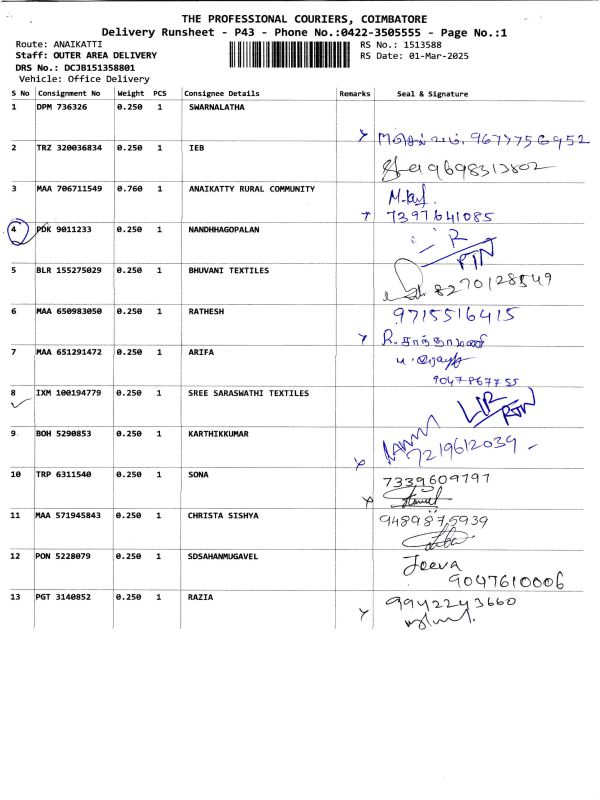 THE PROFESSIONAL COURIERS, COIMBATORE
Delivery Runsheet - P43 - Phone No.:0422-3505555 - Page No.:1
Route: ANAIKATTI RS No.: 1513588
Staff: OUTER AREA DELIVERY RS Date: 01-Mar-2025
DRS No.: DCJB151358801
Vehicle: Office Delivery
S No Consignment No Weight PCS Consignee Details Remarks Seal & Signature
1 DPM 736326 0.250 1 SWARNALATHA
9677756952
2 TRZ 320036834 0.250 1 IEB
9698313802
3 MAA 706711549 0.760 1 ANAIKATTY RURAL COMMUNITY
7397641085
4 PDK 9011233 0.250 1 NANDHHAGOPALAN
R
RTN
5 BLR 155275029 0.250 1 BHUVANI TEXTILES
8270128549
6 MAA 650983050 0.250 1 RATHESH 9715516415
R. சாந்தாமணி
7 MAA 651291472 0.250 1 ARIFA
9047867755
8 IXM 100194779 0.250 1 SREE SARASWATHI TEXTILES
RTN
9 BOH 5290853 0.250 1 KARTHIKKUMAR
7219612039
10 TRP 6311540 0.250 1 SONA 7339609797
11 MAA 571945843 0.250 1 CHRISTA SISHYA 9489875939
12 PON 5228079 0.250 1 SDSAHANMUGAVEL Jeeva
9047610006
13 PGT 3140852 0.250 1 RAZIA 9942243660